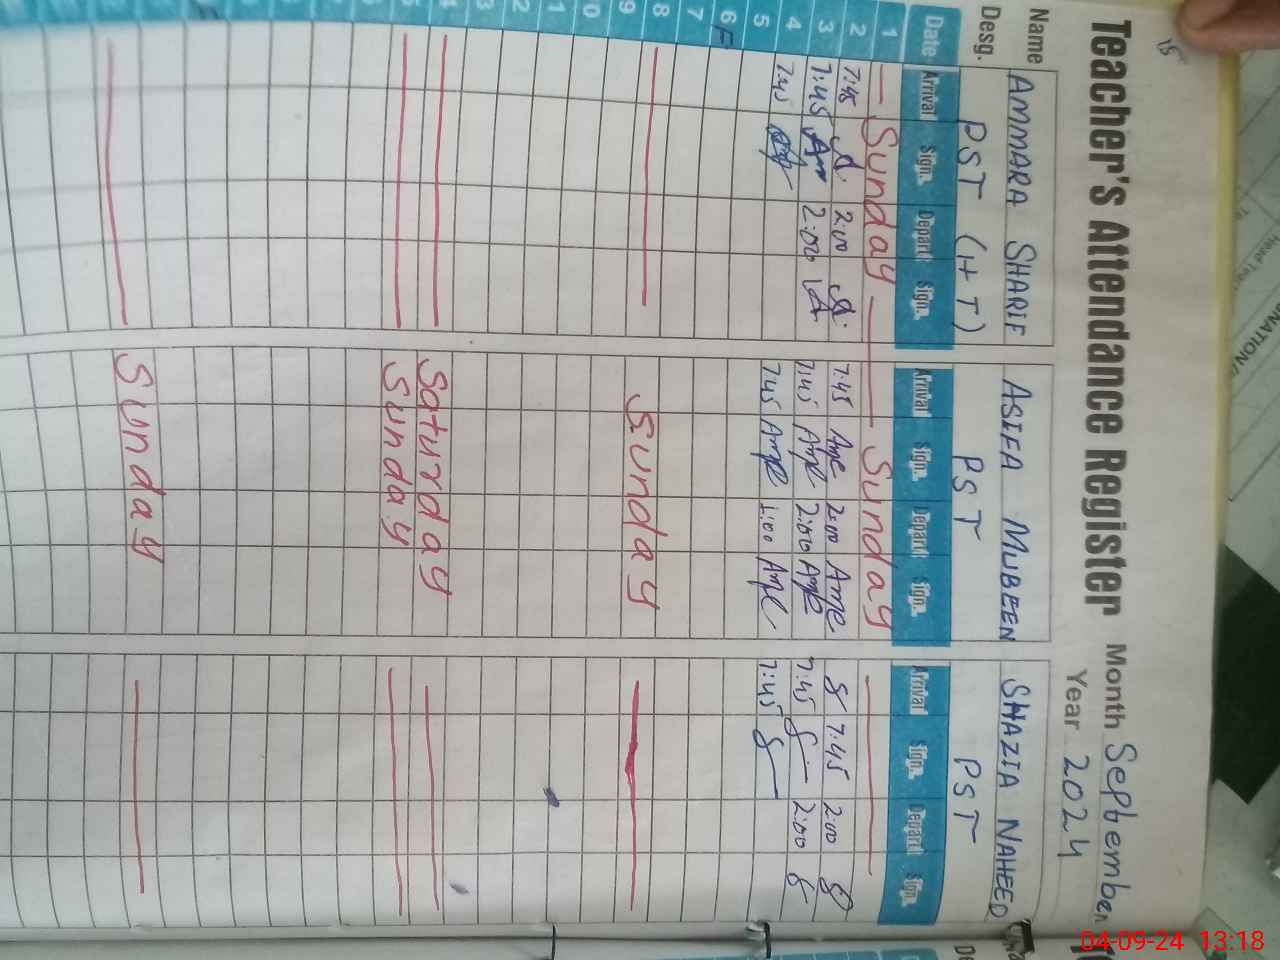 15
Teacher's Attendance Register Month September
Year 2024
Name AMMARA SHARIF ASIFA MUBEEN SHAZIA NAHEED
Desg. PST (HT) PST PST
Date Arrival Sign. Depart Sign. Arrival Sign. Depart Sign. Arrival Sign. Depart Sign.
1 Sunday Sunday
2 7:45 2:00 7:45 2:00 7:45 2:00
3 7:45 2:00 7:45 2:00 7:45 2:00
4 7:45 7:45 1:00 7:45
5
6 F
7
8 Sunday
9
10
11
12
13
14 Saturday
15 Sunday
Sunday
04-09-24 13:18